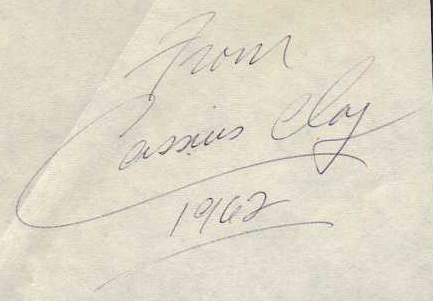 From
Cassius Clay
1962